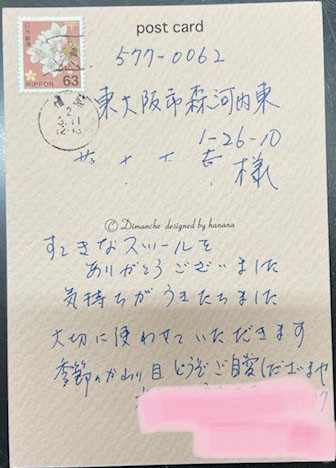 post card
NIPPON 63
577-0062
東大阪市森河内東
1-26-10
様
© Dimanche designed by hanana
すてきなスツールを
ありがとうございました
気持ちがうきたちました
大切に使わせていただきます
季節のかわり目 どうぞご自愛くださいませ